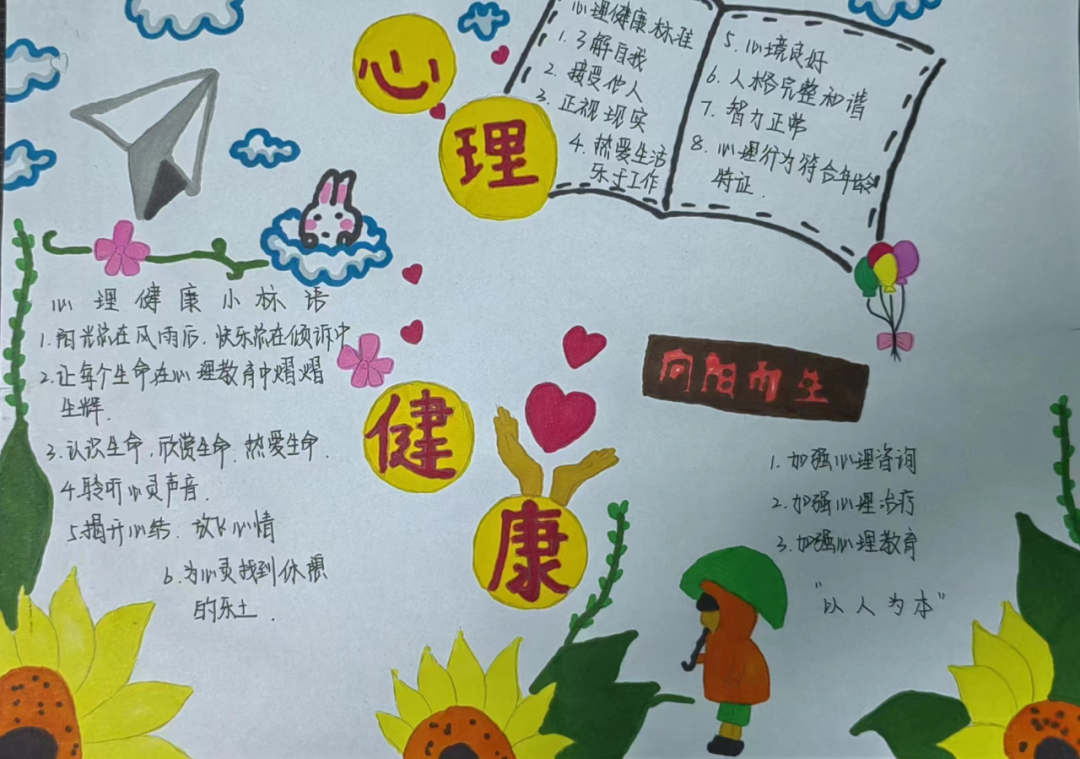 心理健康
心理健康标准
1.了解自我
2.接受他人
3.正视现实
4.热爱生活
乐于工作
5.心境良好
6.人格完整和谐
7.智力正常
8.心理行为符合年龄
特征.
心理健康小标语
1.阳光总在风雨后，快乐总在倾诉中
2.让每个生命在心理教育中熠熠
生辉.
3.认识生命.欣赏生命.热爱生命.
4.聆听心灵声音.
5.揭开心结.放飞心情
6.为心灵找到休憩
的乐土.
向阳而生
1.加强心理咨询
2.加强心理治疗
3.加强心理教育
"以人为本"